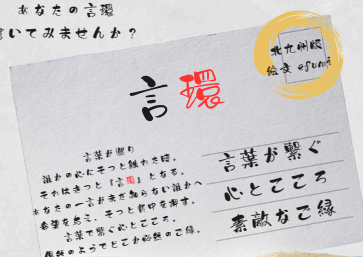 あなたの言環
書いてみませんか?
北九州版
絵文 efumi
言環
言葉が繋り
誰かの心にそっと触れた時。
それはきっと『言環』となる。
あなたの一言がまだ知らない誰かへ
希望を与え、そっと背中を押す。
言葉で繋ぐ心とこころ。
偶然のようでどこか必然のご縁。
言葉が繋ぐ
心とこころ
素敵なご縁